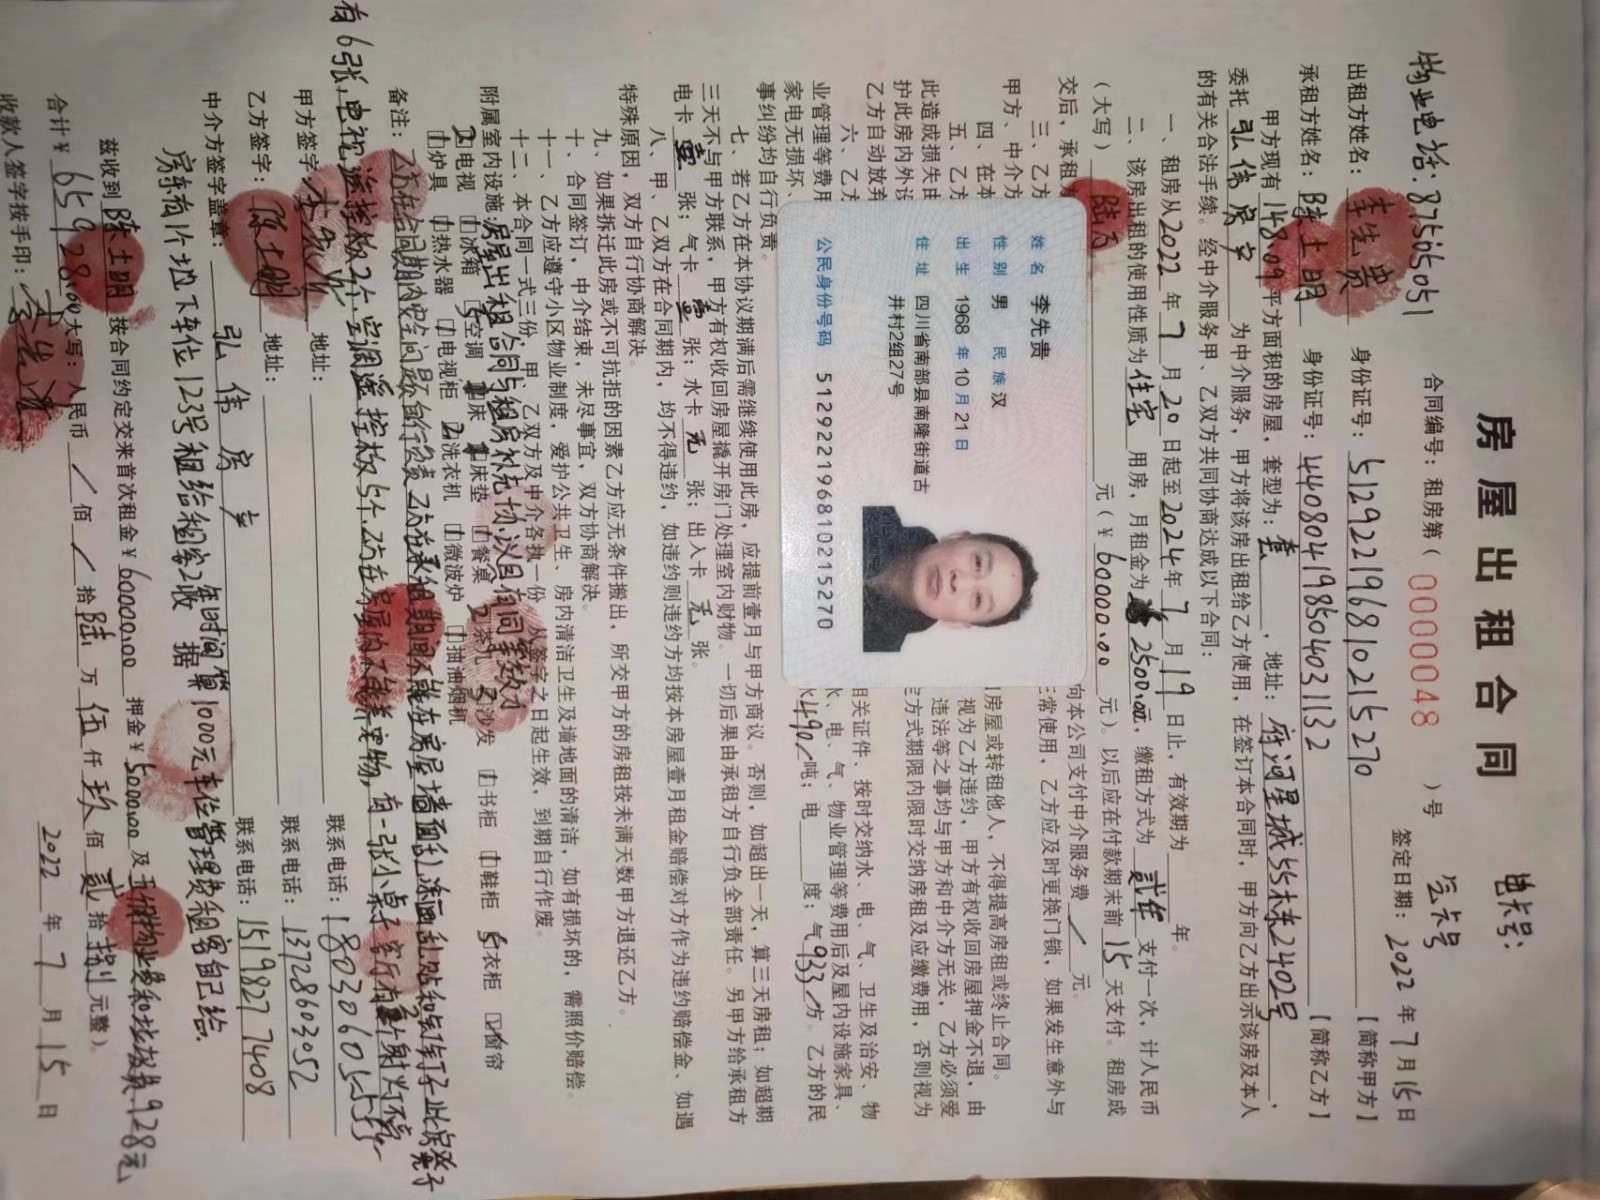 物业电话:87505051
房屋出租合同
电卡号:
气卡号
合同编号:租房第( 0000048 )号 签定日期:2022年7月15日
出租方姓名:李先贵 身份证号:512922196810215270 【简称甲方】
承租方姓名:陆土明 身份证号:440804198504031132 【简称乙方】
甲方现有148.09平方面积的房屋,套型为:壹,地址:府河星城5栋2402号,
委托 弘伟房产 为中介服务,甲方将该房出租给乙方使用,在签订本合同时,甲方向乙方出示该房及本人
的有关合法手续。经中介服务甲、乙双方共同协商达成以下合同:
一、租房从2022年7月20日起至2024年7月19日止,有效期为 年。
二、该房出租的使用性质为住宅用房,月租金为2500.00元,缴租方式为贰年支付一次,计人民币
(大写)陆万 元(¥60000.00元)。以后应在付款期末前15天支付。租房成
交后,承租方 向本公司支付中介服务费 / 元。
三、乙方 常使用,乙方应及时更换门锁,如果发生意外与
甲方、中介方
四、在本 房屋或转租他人,不得提高房租或终止合同。
五、乙方 视为乙方违约,甲方有权收回房屋押金不退,由
此造成损失由 违法等之事均与甲方和中介方无关,乙方必须爱
护此房内外设 方式期限内限时交纳房租及应缴费用,否则视为
乙方自动放弃
六、乙方 相关证件、按时交纳水、电、气、卫生及治安、物
业管理等费用 水、电、气、物业管理等费用后及屋内设施家具、
家电无损坏、 水490/吨;电 度;气933/方。乙方的民
事纠纷均自行负责。
七、若乙方在本协议期满后需继续使用此房,应提前壹月与甲方商议。否则,如超出一天,算三天房租;如超期
三天不与甲方联系,甲方有权收回房屋撬开房门处理室内财物。一切后果由承租方自行负全部责任。另甲方给承租方
电卡壹张;气卡壹张;水卡无张;出入卡无张。
八、甲、乙双方在合同期内,均不得违约,如违约则违约方均按本房屋壹月租金赔偿对方作为违约赔偿金、如遇
特殊原因,双方自行协商解决。
九、如果拆迁此房或不可抗拒的因素乙方应无条件搬出,所交甲方的房租按未满天数甲方退还乙方。
十、合同签订,中介结束,未尽事宜,双方协商解决。
十一、乙方应遵守小区物业制度,爱护公共卫生、房内清洁卫生及墙地面的清洁,如有损坏的,需照价赔偿。
十二、本合同一式三份,甲、乙双方及中介各执一份,从签字之日起生效,到期自行作废。
房屋出租合同与租房补充协议具同等效力
附属室内设施:
2电视 1冰箱 5空调 床 床垫 1餐桌 2茶几 2沙发 1书柜 1鞋柜 5衣柜 窗帘
1炉具 1热水器 1电视柜 2洗衣机 1微波炉 1抽油烟机
备注:乙方在合同期内安全问题自行负责 乙方在承租期间不能在房屋墙面
有6张,电视遥控板2个,空调遥控板5个.乙方在房屋内不能养宠物,有一张小桌子
甲方签字:李先贵 地址: 联系电话:18030605535
乙方签字:陆土明 地址: 联系电话:13728603052
中介方签字盖章:弘伟房产 联系电话:15198277408
房东有1个地下车位123号租给租客2年时间
1000元车位管理费租客自己给.
兹收到陆土明按合同约定交来首次租金¥60000.00 押金¥5000.00及 928元
合计¥65928.00大写:人民币 / 佰 / 拾陆万伍仟玖佰贰拾捌元整)。
收款人签字按手印:李先贵 2022年7月15日
姓名 李先贵
性别 男 民族 汉
出生 1968 年 10 月 21 日
住址 四川省南部县南隆街道古
井村2组27号
公民身份号码 512922196810215270